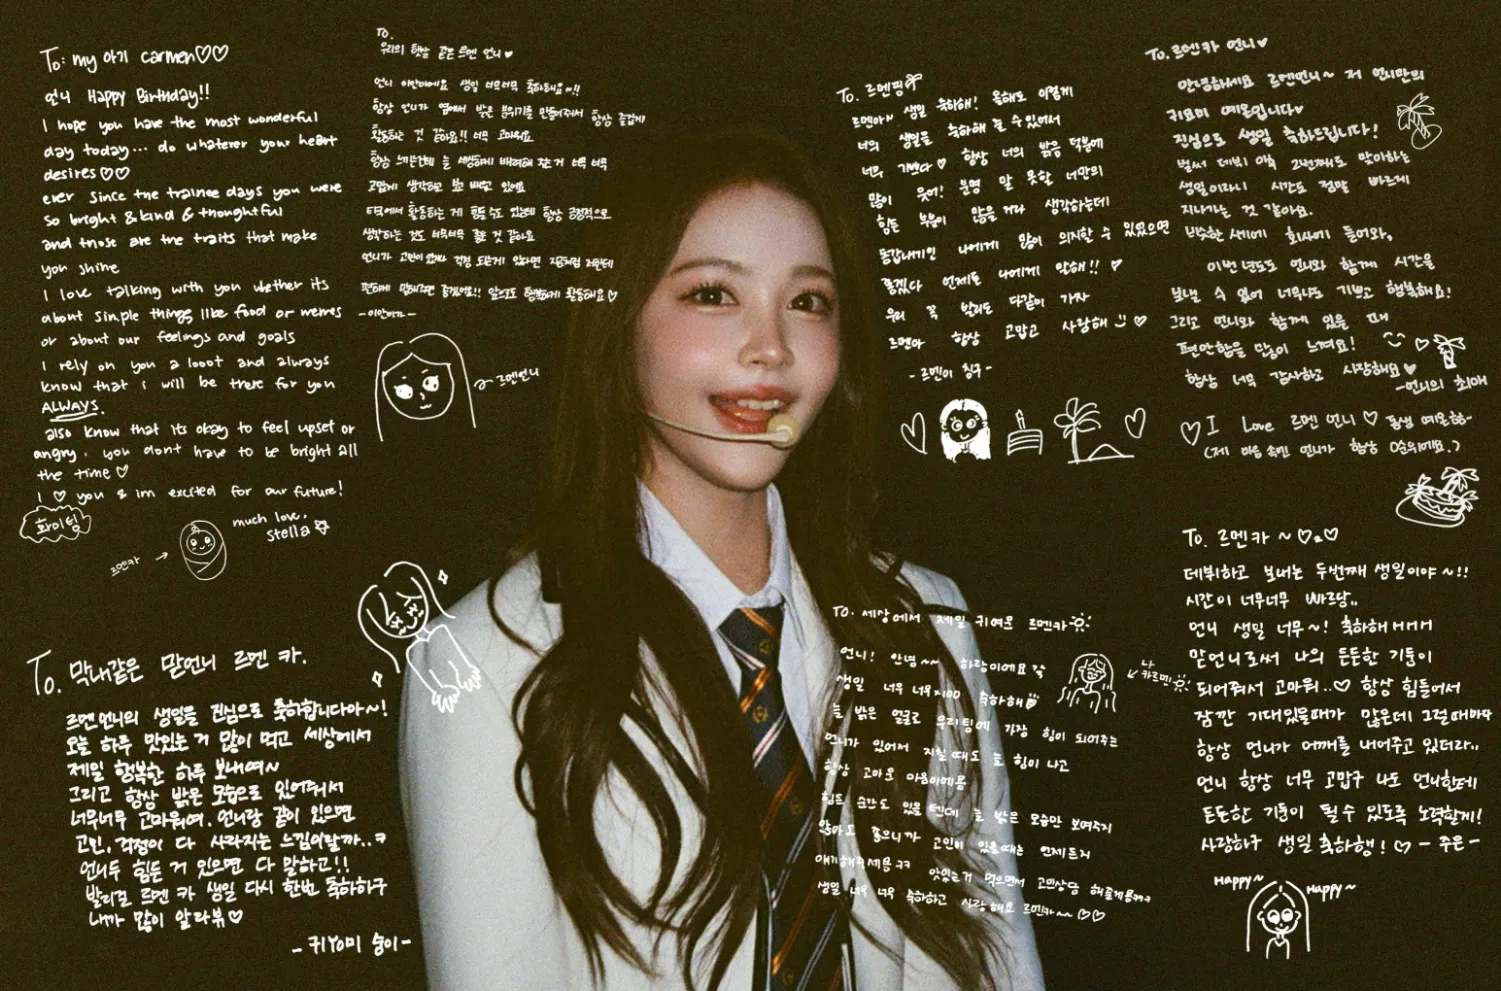 To: my 아기 carmen♡♡
언니 Happy Birthday!!
I hope you have the most wonderful
day today... do whatever your heart
desires♡♡
ever since the trainee days you were
so bright & kind & thoughtful
and those are the traits that make
you shine
I love talking with you whether its
about simple things like food or memes
or about our feelings and goals
I rely on you a looot and always
know that i will be there for you
ALWAYS.
also know that its okay to feel upset or
angry. you don't have to be bright all
the time♡
I ♡ you & im excited for our future!
화이팅
much love,
stella
르멘카 →
To.
우리의 햇살 같은 르멘 언니♥
언니 이안이에요 생일 너무너무 축하해요~!!
항상 언니가 옆에서 밝은 분위기를 만들어줘서 항상 즐겁게
활동하는 것 같아요!! 너무 고마워요
항상 느끼는건데 늘 세심하게 배려해 주는 거 너무 너무
고맙게 생각하고 보고 배우고 있어요
타국에서 활동하는 게 힘들 수도 있는데 항상 긍정적으로
생각하는 것도 너무너무 좋은 것 같아요
편하게 말해주면 좋겠어요!! 앞으로도 행복하게 활동해요♡
-이안이가-
르멘언니
To. 르멘핑
르멘아~ 생일 축하해! 올해도 이렇게
너의 생일을 축하해 줄 수 있어서
너무 기쁘다♡ 항상 너의 밝음 덕분에
많이 웃어! 분명 말 못할 너만의
힘든 부분이 많을거라 생각하는데
동갑내기인 나에게 많이 의지할 수 있었으면
좋겠다 언제든 나에게 말해!! ♡
우리 꼭 발리도 다같이 가자
르멘아 항상 고맙고 사랑해 ♡
-르멘이 칭구-
To. 르멘카 언니♥
안녕하세요 르멘언니~ 저 언니만의
귀요미 예온입니다♥
진심으로 생일 축하드립니다!
벌써 데뷔 이후 2번째로 맞이하는
생일이라니 시간도 정말 빠르게
지나가는 것 같아요.
회사에 들어와,
이번 년도도 언니와 함께 시간을
보낼 수 있어 너무나도 기쁘고 행복해요!
그리고 언니와 함께 있을 때
편안함을 많이 느껴요!
항상 너무 감사하고 사랑해요♥
-언니의 최애
♡I Love 르멘 언니♡ 동생 예온
(제 마음 속엔 언니가 항상 0순위에요.)
To. 르멘카~ ♡
데뷔하고 보내는 두번째 생일이야~!!
시간이 너무너무 빠르당..
언니 생일 너무~! 축하해ㅐㅐㅐ
맏언니로써 나의 든든한 기둥이
되어줘서 고마워..♡ 항상 힘들어서
잠깐 기대있을때가 많은데 그럴때마다
항상 언니가 어깨를 내어주고 있더라..
언니 항상 너무 고맙구 나도 언니한테
든든한 기둥이 될 수 있도록 노력할게!
사랑하구 생일 축하행! ♡ -주은-
Happy~ Happy~
To. 막내같은 맏언니 르멘 카.
르멘언니의 생일을 진심으로 축하합니다아~!
오늘 하루 맛있는 거 많이 먹고 세상에서
제일 행복한 하루 보내여~
그리고 항상 밝은 모습으로 있어줘서
너무너무 고마워여. 언니랑 같이 있으면
고민, 걱정이 다 사라지는 느낌이랄까..ㅋ
언니두 힘든 거 있으면 다 말하고!!
발리로 르멘 카 생일 다시 한번 축하하구
내가 많이 알라뷰♡
-귀Yomi 숭이-
To. 세상에서 제일 귀여운 르멘카
언니! 안녕~~ 하랑이에요
생일 너무 너무×100 축하해
늘 밝은 얼굴로 우리팀에 가장 힘이 되어주는
언니가 있어서 지칠 때도 늘 힘이 나고
항상 고마운 마음이에욤
힘든 순간도 있을 텐데 늘 밝은 모습만 보여주지
않아도 좋으니까 고민이 있을때는 언제든지
얘기해주세용ㅋㅋ 맛있는거 먹으면서 고민상담 해줄게용ㅋㅋㅋ
생일 너무 너무 축하하고 사랑해요 르멘카~~ ♡♡
나
카르멘